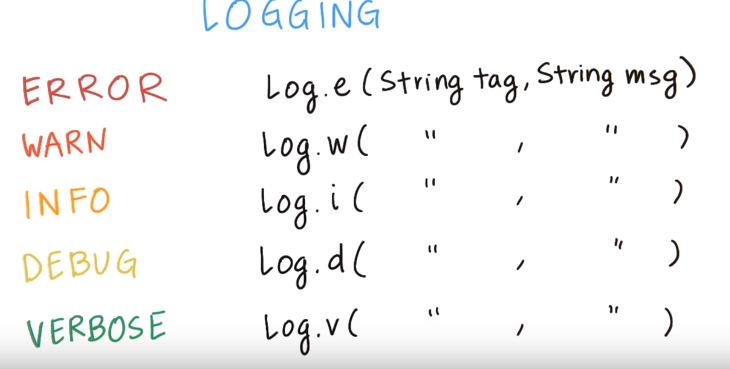 LOGGING
ERROR Log.e (String tag, String msg)
WARN Log.w ( " , " )
INFO Log.i ( " , " )
DEBUG Log.d ( " , " )
VERBOSE Log.v ( " , " )